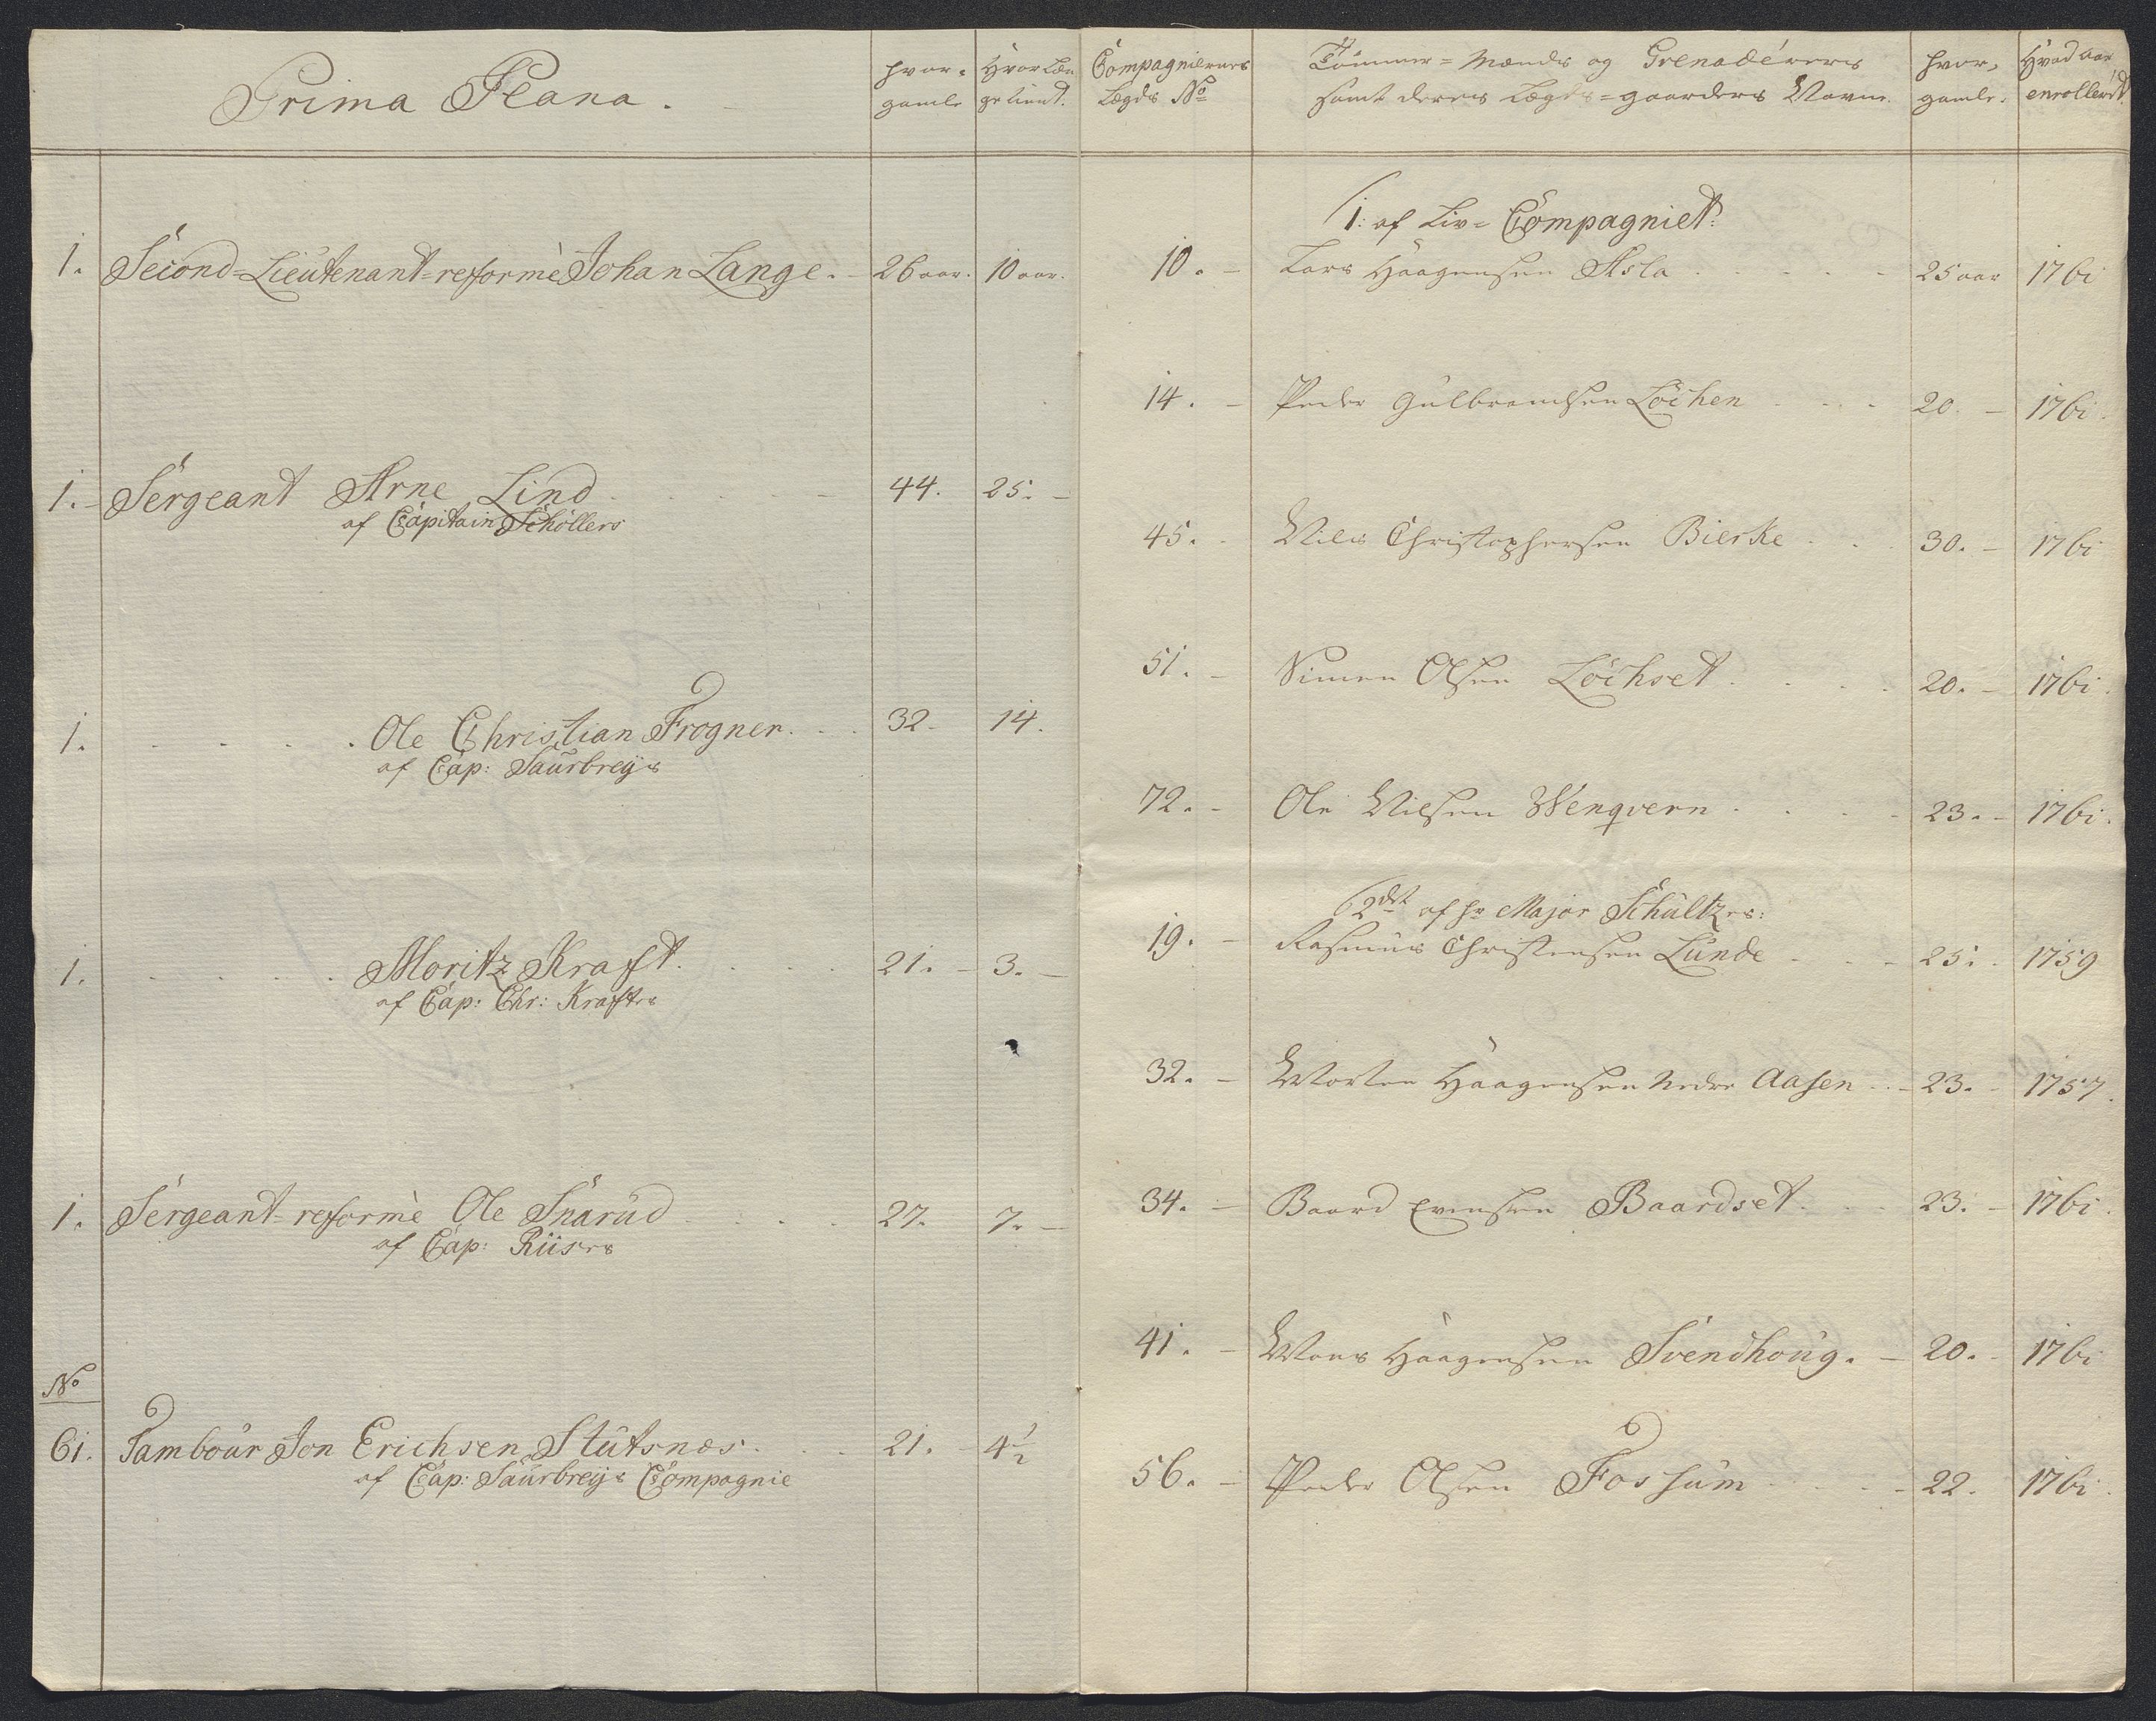 Prima Plana.
hvor-
gamle
Hvor Læn
ge tient.
1. Second-Lieutenant-reformè Johan Lange. 26 aar. 10 aar.
1. Sergeant Arne Lind 44. 25.
af Capitain Schøllers
1. Ole Christian Frogner. 32. 14.
af Cap: Saurbreÿs
1. Moritz Krafft. 21. 3.
af Cap: Chr: Kraffts
1. Sergeant-reformè Ole Snarud 27. 7.
af Cap: Riises
No
61. Tambour Jon Erichsen Stutsnæs. 21. 4½
af Cap: Saurbreÿs Compagnie
Compagniernes
Lægds No
Tömmer-Mænds og Grenadérers
samt deres Lægds-gaarders Navne.
hvor-
gamle.
Hvad aar
enrollerét
1: af Liv-Compagniet:
10. Lars Haagensen Asla 25 aar 1761
14. Peder Gulbrandsen Löchen 20. 1761.
45. Nils Christophersen Bierke 30. 1761
51. Simen Olsen Löchset 20. 1761.
72. Ole Nilsen Wenqvern 23. 1761.
2det af Hr Major Schultzes:
19. Rasmus Christensen Lunde 25. 1759
32. Morten Haagensen Nedre Aasen 23. 1757.
34. Baard Evensen Baardset. 23. 1761.
41. Mons Haagensen Svendhoug. 20. 1761
56. Peder Olsen Fossum 22. 1761.